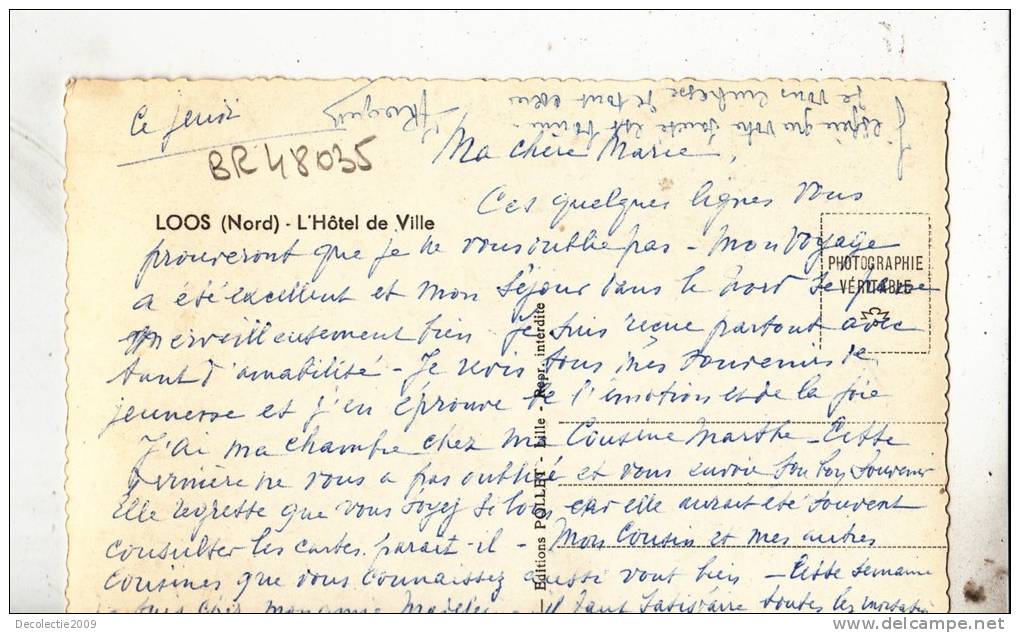 Ce jeudi
BR48035
Ma chère Marie,
LOOS (Nord) - L'Hôtel de Ville
Ces quelques lignes vous
prouveront que je ne vous oublie pas - Mon voyage
a été excellent et mon séjour dans le nord se passe
merveilleusement bien - Je suis reçue partout avec
tant d'amabilité - Je revis tous mes souvenirs de
jeunesse et j'en éprouve de l'émotion et de la joie
J'ai ma chambre chez ma Cousine Marthe - Cette
dernière ne vous a pas oublié et vous envoie son bon souvenir
Elle regrette que vous soyez si loin car elle aurait été souvent
consulter les cartes, parait-il - Mon Cousin et mes autres
cousines que vous connaissez aussi vont bien - Cette semaine
suis chez - il faut satisfaire toutes les
J'espère que votre santé est bonne -
Je vous embrasse de tout cœur
PHOTOGRAPHIE
VÉRITABLE
Editions POLLET - Lille - Repr. interdite
Decolectie2009
delcampe.net